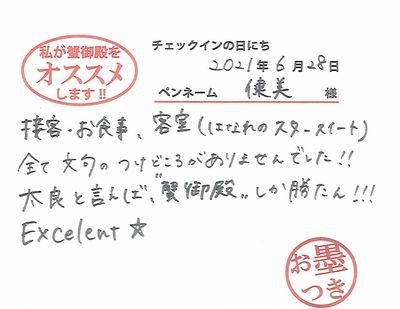 私が蟹御殿を
オススメ
します!!
チェックインの日にち
2021年6月28日
ペンネーム 健美 様
接客・お食事、客室(はなれのスタースイート)
全て文句のつけどころがありませんでした!!
太良と言えば、"蟹御殿"しか勝たん!!!
Excelent☆
お墨
つき